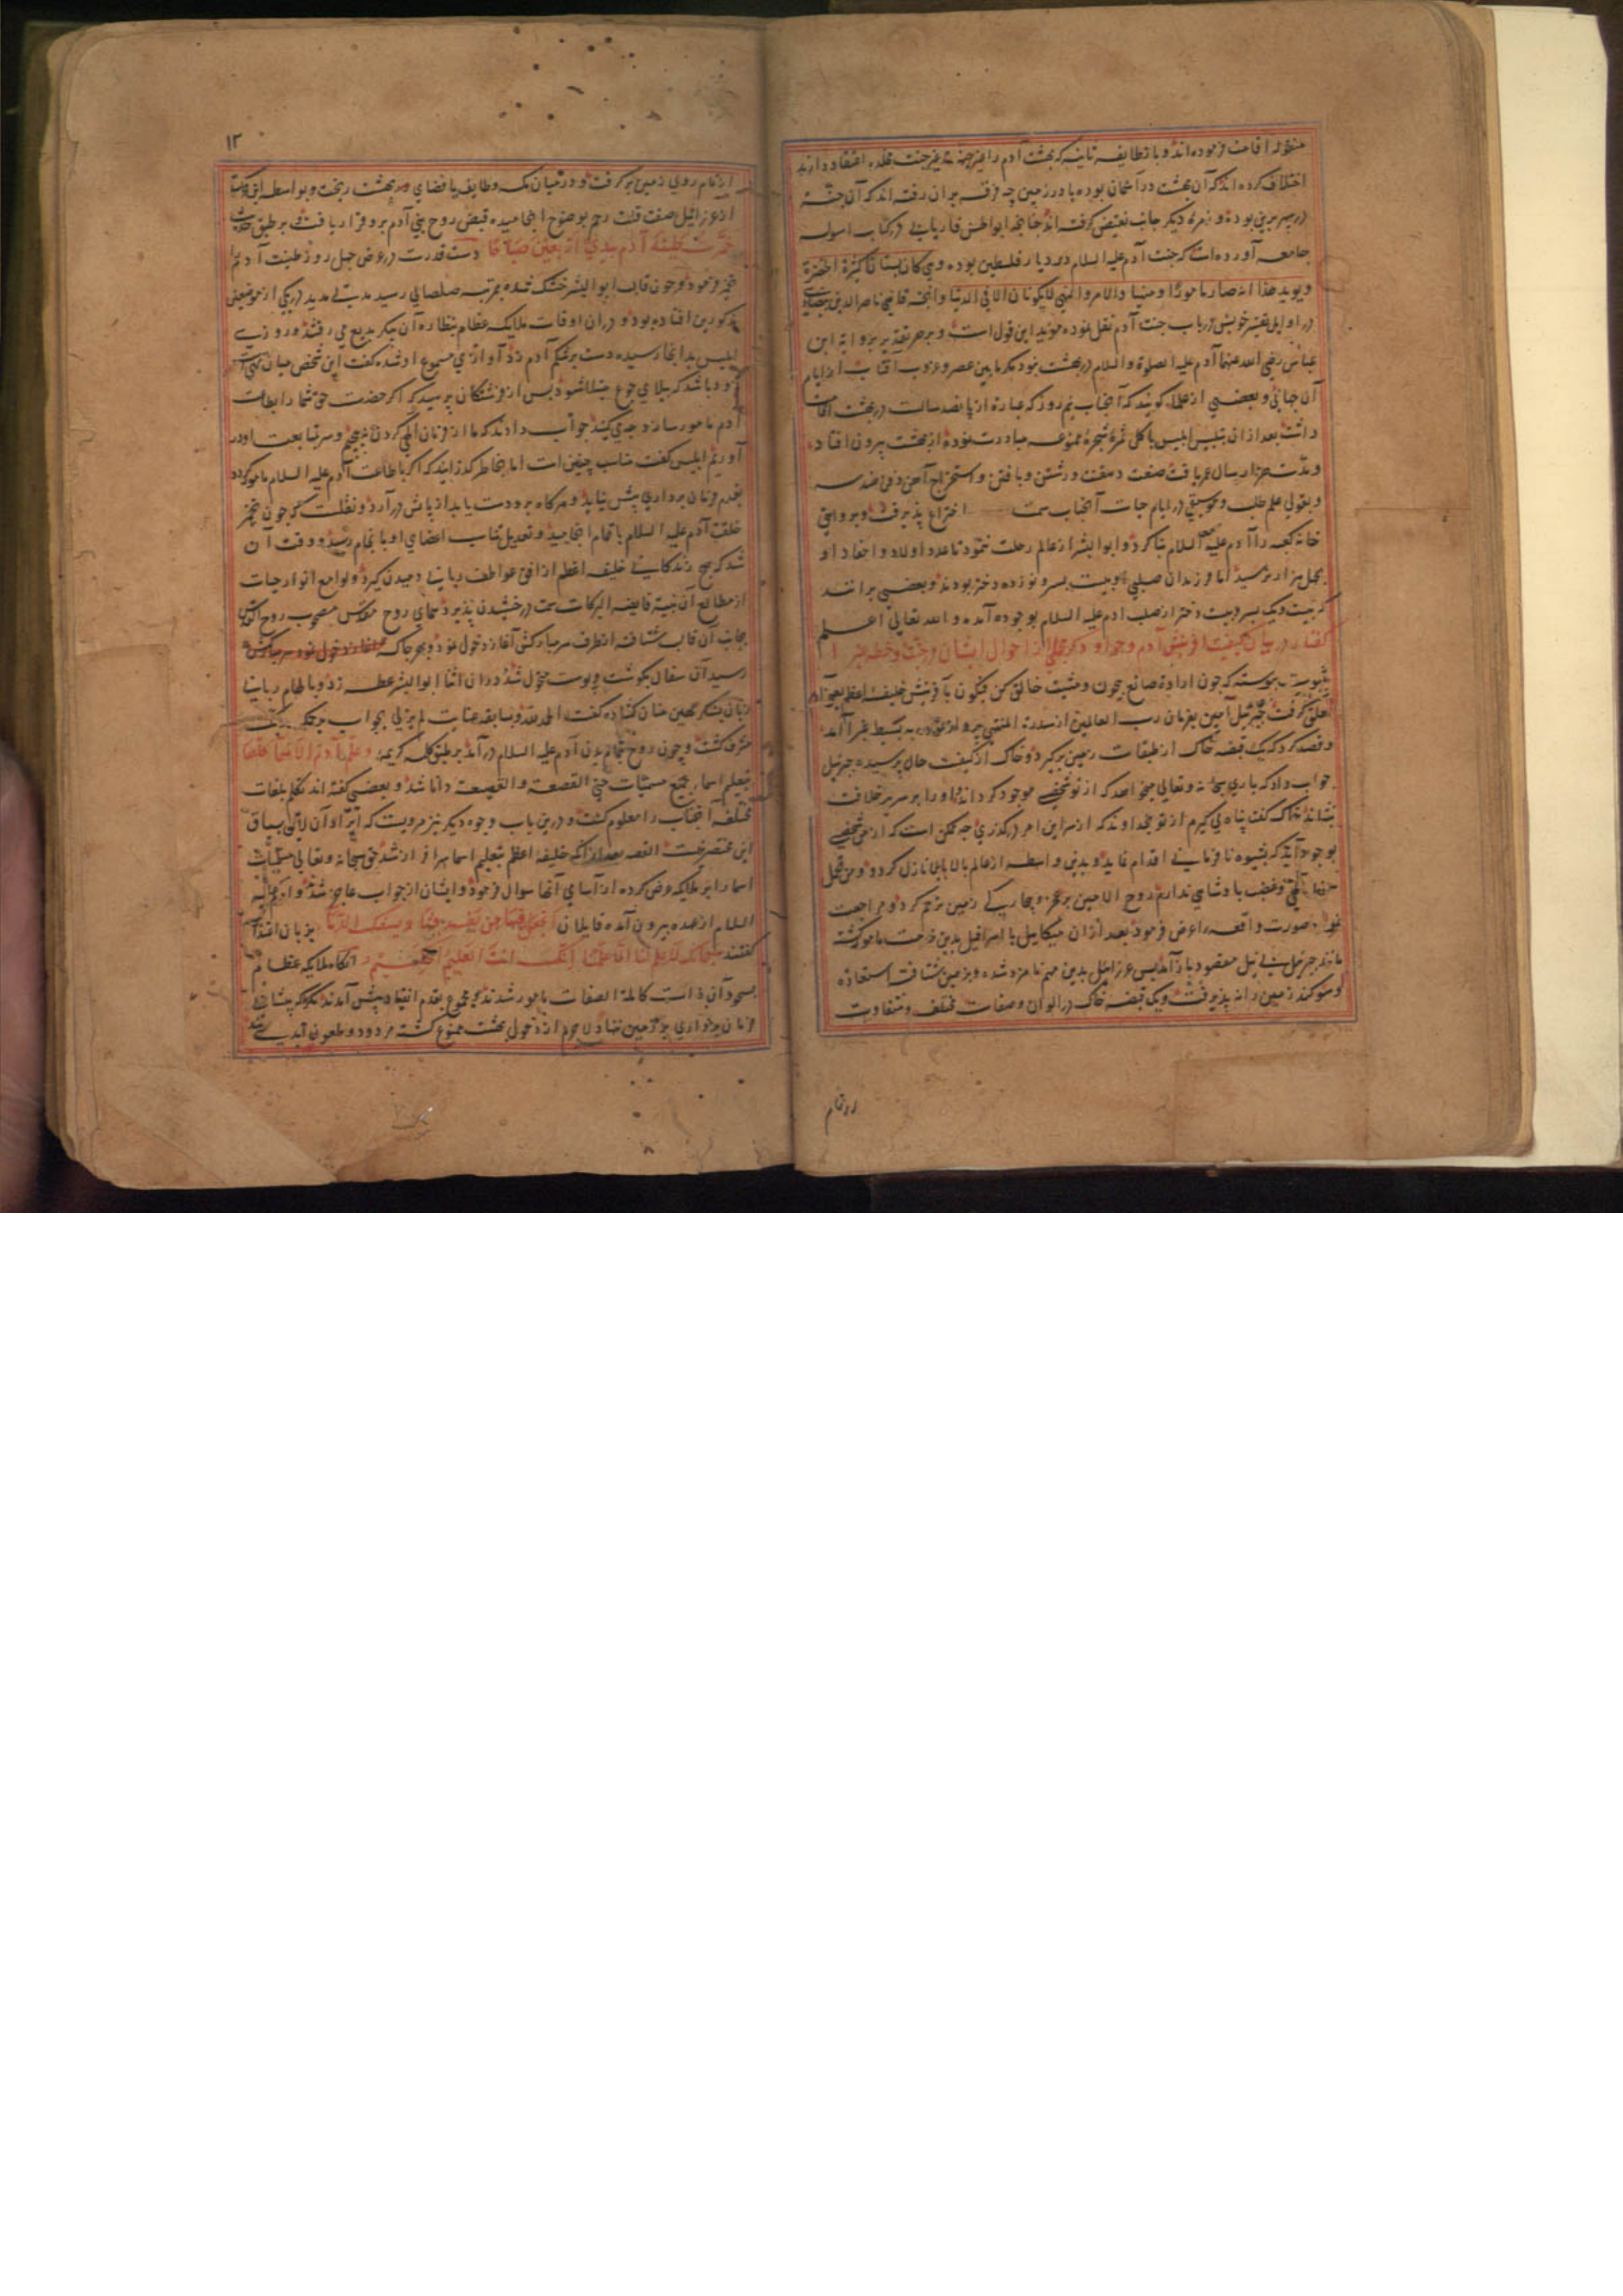 اختلاف کرده اند که آن بهشت در آسمان بوده یا در زمین چه فرقه بر آن رفته اند که آن جنة
جامعه آورده است که جنت آدم علیه السلام در دیار فلسطین بوده وهی کان بستانا کثیرة اخضرة
ویوید هذا انه صار مامورا و منهیا والامر والنهی لایکونان الا فی الدنیا وآنچه قاضی ناصرالدین بیضاوی
در اوایل تفسیر خویش در باب جنت آدم نقل نموده موید این قول است و بر هر تقدیر بروایة ابن
عباس رضی الله عنهما آدم علیه الصلوة والسلام در بهشت نبود مگر ما بین عصر و غروب آفتاب از ایام
آن جهانی و بعضی از علما گویند که آنجناب نیم روز که عبارة از پانصد سالست در بهشت اقامت
داشت بعد از ان بتلبیس ابلیس باکل ثمره شجرهٔ ممنوعه مبادرت نموده از بهشت بیرون افتاد
و مدت هزار سال عمر یافت صنعت رشتن و بافتن و استخراج آهن و فن هندسه
و بقولی علم طب و موسیقی در ایام حیات آنجناب سمت اختراع پذیرفت و بروایتی
خانه کعبه را آدم علیه السلام بنا کرد و ابوالبشر از عالم رحلت ننمود تا عدد اولاد و احفاد او
بچهل هزار نرسید اما فرزندان صلبی او بیست پسر و نوزده دختر بودند و بعضی برانند
که بیست و یک پسر و بیست دختر از صلب آدم علیه السلام بوجود آمده والله تعالی اعلم
گفتار در بیان کیفیت آفرینش آدم و حوا و ذکر مجملی از احوال ایشان در جنت و خطه غبرا
بثبوت پیوسته که چون ارادهٔ صانع بیچون و مشیت خالق کن فیکون بآفرینش خلیفهٔ اعظم
تعلق گرفت جبرئیل امین بفرمان رب العالمین از سدرة المنتهی به بسیط غبرا آمد
و قصد کرد که یک قبضه خاک از طبقات زمین برگیرد و خاک از کیفیت حال پرسیده جبرئیل
جواب داد که باری سبحانه و تعالی میخواهد که از تو شخصی موجود گرداند و او را بر سریر خلافت
نشاند خاک گفت پناه می گیرم از تو بخداوند که از سر این امر درگذری چه ممکن است که از من شخصی
بوجود آید که بشیوه نافرمانی اقدام نماید و بدین واسطه از عالم بالا بلا نازل گردد و من تحمل
سخط الهی و غضب پادشاهی ندارم روح الامین بر عجز و بیچارگی زمین ترحم کرد و مراجعت
نمود صورت واقعه را عرض فرمود بعد از ان میکائیل یا اسرافیل بدین خدمت مامور گشته
مانند جبرئیل بی نیل مقصود باز آمد پس عزرائیل بدین مهم نامزد شده و بزمین شتافت استعاذه
و سوگند زمین را نپذیرفت و یک قبضه خاک در الوان و صفات مختلف و متفاوت
از تمام
۱۲
از تمام روی زمین برگرفت و در میان مکه و طایف یا فضای در بهشت ریخت و بواسطه این که
از عزرائیل صفت قلت رحم بوضوح انجامیده قبض روح بنی آدم برو قرار یافت و بر طبق حدیث
خمرت طینة آدم بیدی اربعین صباحا دست قدرت در عرض چهل روز طینت آدم را
تخمیر فرمود و چون قالب ابوالبشر خشک شده بمرتبه صلصالی رسید مدتی مدید در یکی از موضعین
مذکورین افتاده بود و در ان اوقات ملایکه عظام بنظاره آن پیکر بدیع می رفتند و روزی
ابلیس بدانجا رسیده دست بر شکم آدم زد آوازی مسموع او شده گفت این شخص میان تهی است
زود باشد که ببلای جوع مبتلا شود پس از فرشتگان پرسید که اگر حضرت حق شما را باطاعت
آدم مامور سازد چه می کنید جواب دادند که ما از فرمان الهی گردن نپیچیم و سر بمتابعت او در
آوریم ابلیس گفت مناسب چنین است اما بخاطر گذرانید که اگر باطاعت آدم علیه السلام مامور گردد
بقدم فرمان برداری پیش نیاید و هرگاه برو دست یابد از پایش در آرد و نقلست که چون تخمیر
خلقت آدم علیه السلام باتمام انجامید و تعدیل تناسب اعضای او بانجام رسید و وقت آن
شد که صبح زندگانی خلیفه اعظم از افق عواطف ربانی دمیدن گیرد و لوامع انوار حیات
از مطالع آن بنیه فایضه البرکات سمت درخشیدن پذیرد همای روح مقدس مصحوب روح القدس
بجانب آن قالب شتافته از طرف سر مبارکش آغاز دخول نمود و بهر جا که
رسید آن سفال بگوشت و پوست متحول شد و در ان اثنا ابوالبشر عطسه زد و بالهام ربانی
زبان بشکر مهیمن منان گشاده گفت الحمد لله و بسابقه عنایت لم یزلی بجواب یرحمک ربک
مشرف گشت و چون روح بتمام بدن آدم علیه السلام در آمد بر طبق کلمه کریمه وعلم آدم الاسماء کلها
بتعلیم اسماء جمیع مسمیات حتی القصعة والقصیعة دانا شد و بعضی گفته اند تکلم بلغات
مختلفه آنجناب را معلوم گشت و درین باب وجوه دیگر نیز مرویست که ایراد آن لایق سیاق
این مختصر نیست القصه بعد از آنکه خلیفهٔ اعظم بتعلیم اسما سرافراز شد حق سبحانه و تعالی مسمیات
اسما را بر ملایکه عرض کرده از اسامی آنها سوال فرمود و ایشان از جواب عاجز شدند و آدم علیه
السلام از عهده بیرون آمده قایلان اتجعل فیها من یفسد فیها و یسفک الدماء بزبان اعتذار
گفتند سبحانک لاعلم لنا الا ما علمتنا انک انت العلیم الحکیم آنگاه ملایکه عظام
بسجود آن ذات کاملة الصفات مامور شدند و مجموع بقدم انقیاد پیش آمدند مگر
فرمان برداری بر زمین ننهاد لاجرم از دخول بهشت ممنوع گشته مردود و ملعون ابدی شد